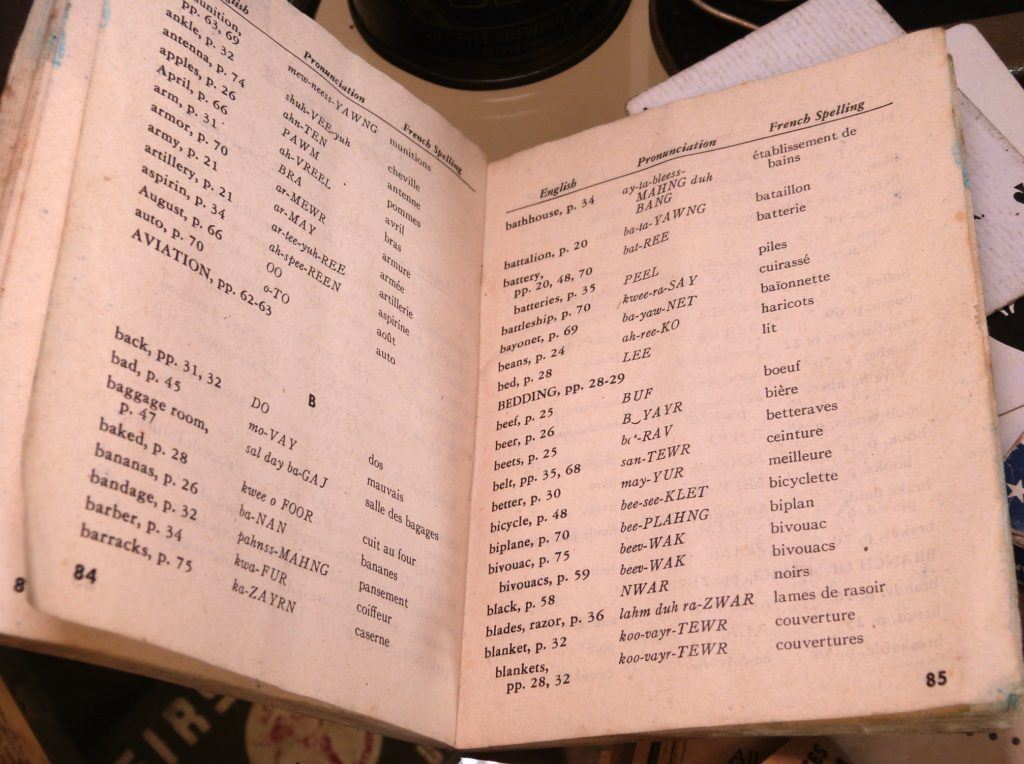 English Pronunciation French Spelling
munition, pp. 63, 69 mew-neess-YAWNG munitions
ankle, p. 32 shuh-VEE-yuh cheville
antenna, p. 74 ahn-TEN antenne
apples, p. 26 PAWM pommes
April, p. 66 ah-VREEL avril
arm, p. 31 BRA bras
armor, p. 70 ar-MEWR armure
army, p. 21 ar-MAY armée
artillery, p. 21 ar-tee-yuh-REE artillerie
aspirin, p. 34 ah-spee-REEN aspirine
August, p. 66 OO août
auto, p. 70 o-TO auto
AVIATION, pp. 62-63
B
back, pp. 31, 32 DO dos
bad, p. 45 mo-VAY mauvais
baggage room, sal day ba-GAJ salle des bagages
p. 47
baked, p. 28 kwee o FOOR cuit au four
bananas, p. 26 ba-NAN bananes
bandage, p. 32 pahnss-MAHNG pansement
barber, p. 34 kwa-FUR coiffeur
barracks, p. 75 ka-ZAYRN caserne
8
84
English Pronunciation French Spelling
bathhouse, p. 34 ay-ta-bleess- établissement de
MAHNG duh bains
BANG
battalion, p. 20 ba-ta-YAWNG bataillon
battery, bat-REE batterie
pp. 20, 48, 70
batteries, p. 35 PEEL piles
battleship, p. 70 kwee-ra-SAY cuirassé
bayonet, p. 69 ba-yaw-NET baïonnette
beans, p. 24 ah-ree-KO haricots
bed, p. 28 LEE lit
BEDDING, pp. 28-29
beef, p. 25 BUF boeuf
beer, p. 26 B‿YAYR bière
beets, p. 25 -RAV betteraves
belt, pp. 35, 68 san-TEWR ceinture
better, p. 30 may-YUR meilleure
bicycle, p. 48 bee-see-KLET bicyclette
biplane, p. 70 bee-PLAHNG biplan
bivouac, p. 75 beev-WAK bivouac
bivouacs, p. 59 beev-WAK bivouacs
black, p. 58 NWAR noirs
blades, razor, p. 36 lahm duh ra-ZWAR lames de rasoir
blanket, p. 32 koo-vayr-TEWR couverture
blankets, koo-vayr-TEWR couvertures
pp. 28, 32
85